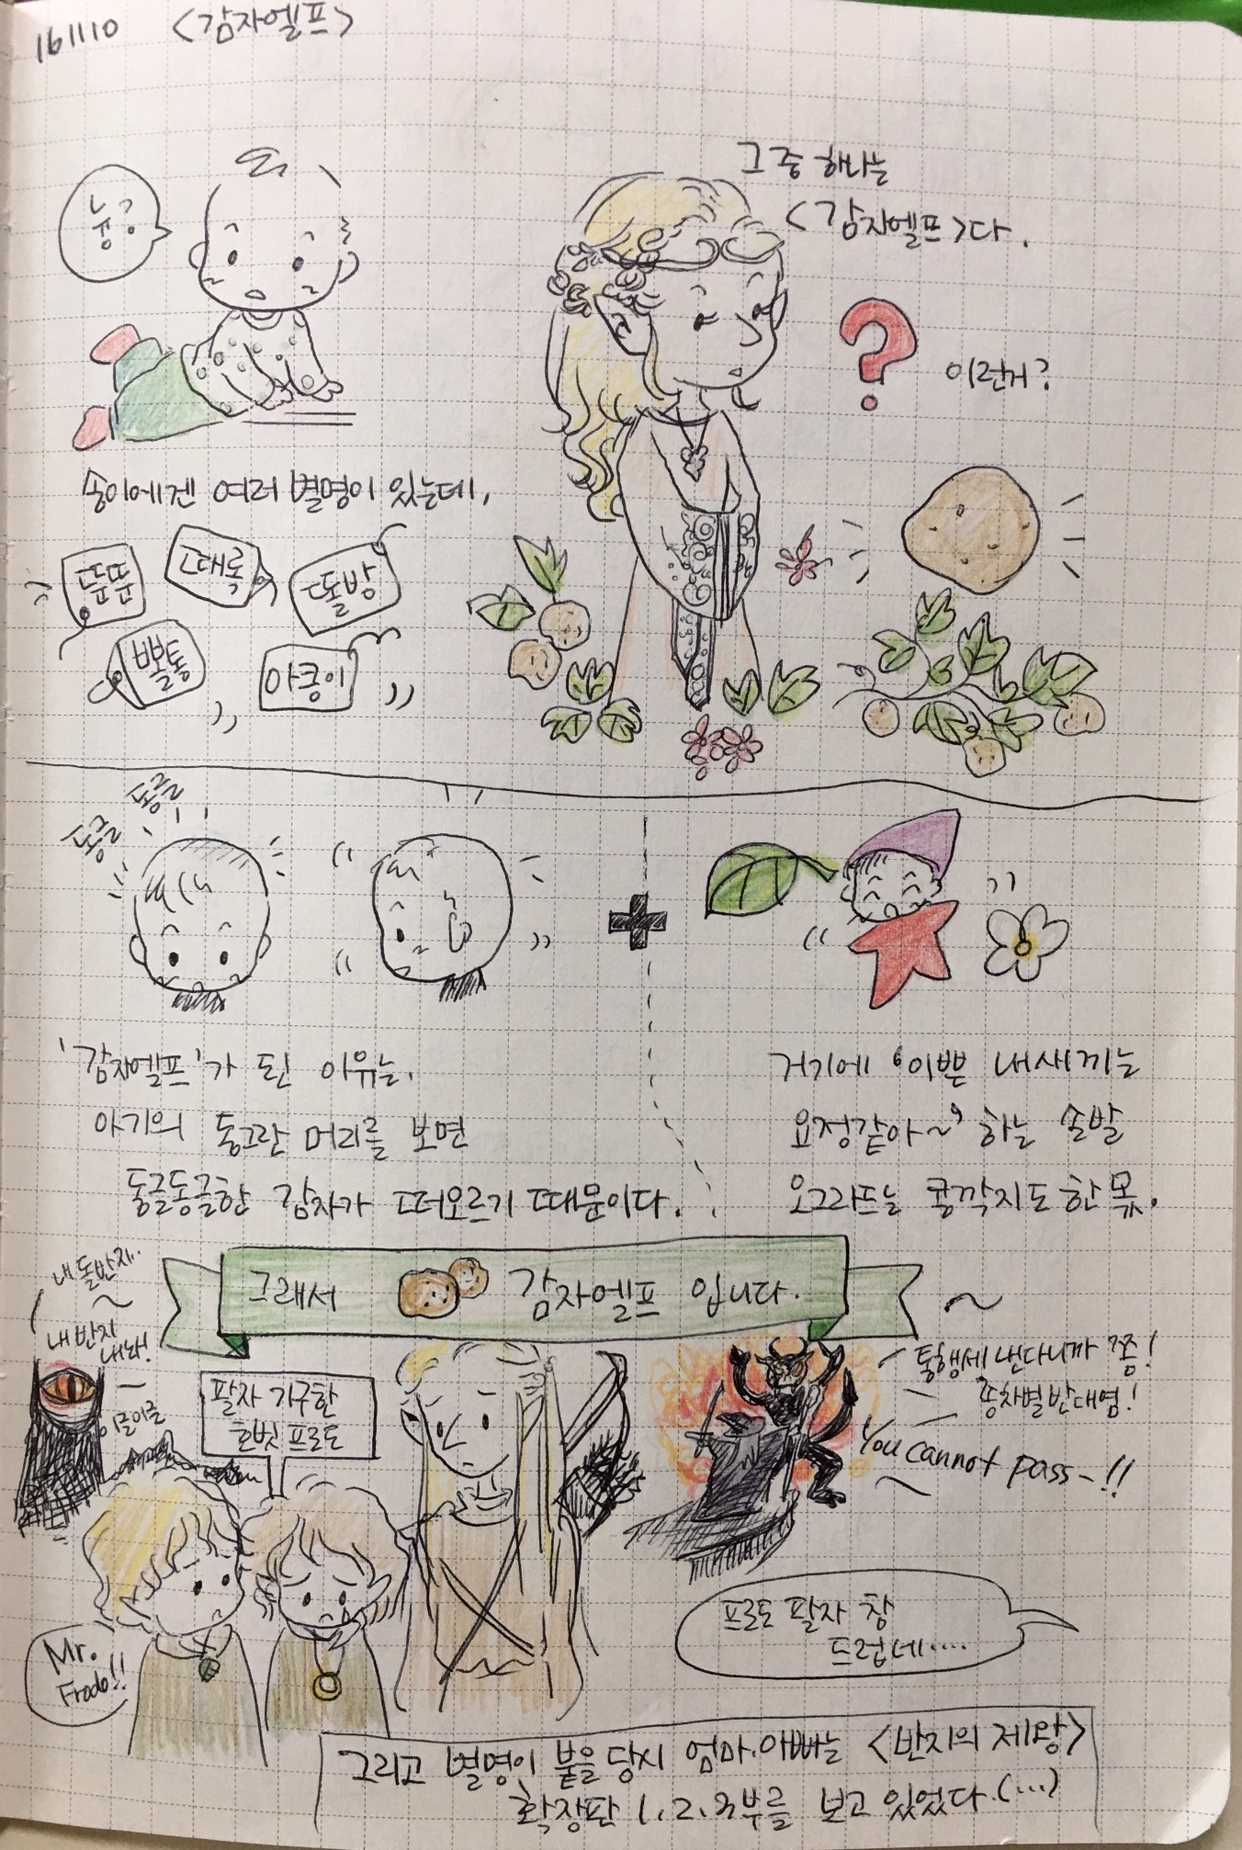 161110 <감자엘프>
눙?
송이에겐 여러 별명이 있는데,
뚠뚠
때록
똘방
뽀통
아콩이
그 중 하나는
<감자엘프>다.
?
이런거?
동글 동글
+
'감자엘프'가 된 이유는,
아기의 동그란 머리를 보면
동글동글한 감자가 떠오르기 때문이다.
거기에 '이쁜 내새끼는
요정같아~' 하는 솔발
오그라드는 콩깍지도 한 몫.
그래서 감자엘프 입니다.
내 돌반지..
내 반지
내놔!
이글이글
팔자 기구한
호빗 프로도
통행세 낸다니까 쫌!
종차별 반대염!
You cannot pass~!!
Mr.
Frodo!!
프로도 팔자 참
드럽네....
그리고 별명이 붙을 당시 엄마.아빠는 <반지의 제왕>
확장판 1.2.3부를 보고 있었다.(...)